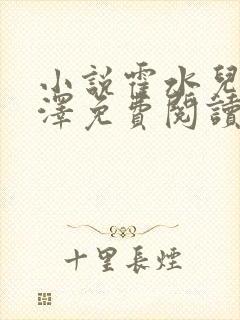 小說霍水兒
澤免費閱讀
十里長煙